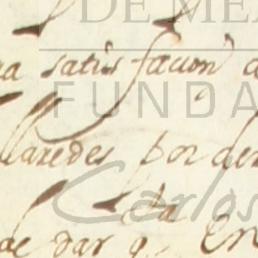 DE ME
ra satis façion
FUNDA
llaredes por de
Carlos
ta
de dar q en